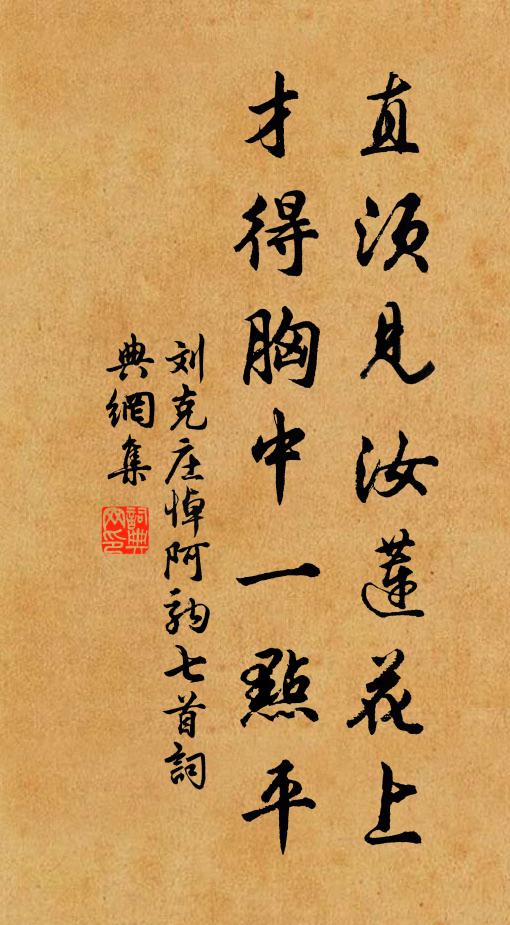 直須見汝蓮花上
才得胸中一點平
刘克庄悼阿駒七首詞
典網集
詞典
网印